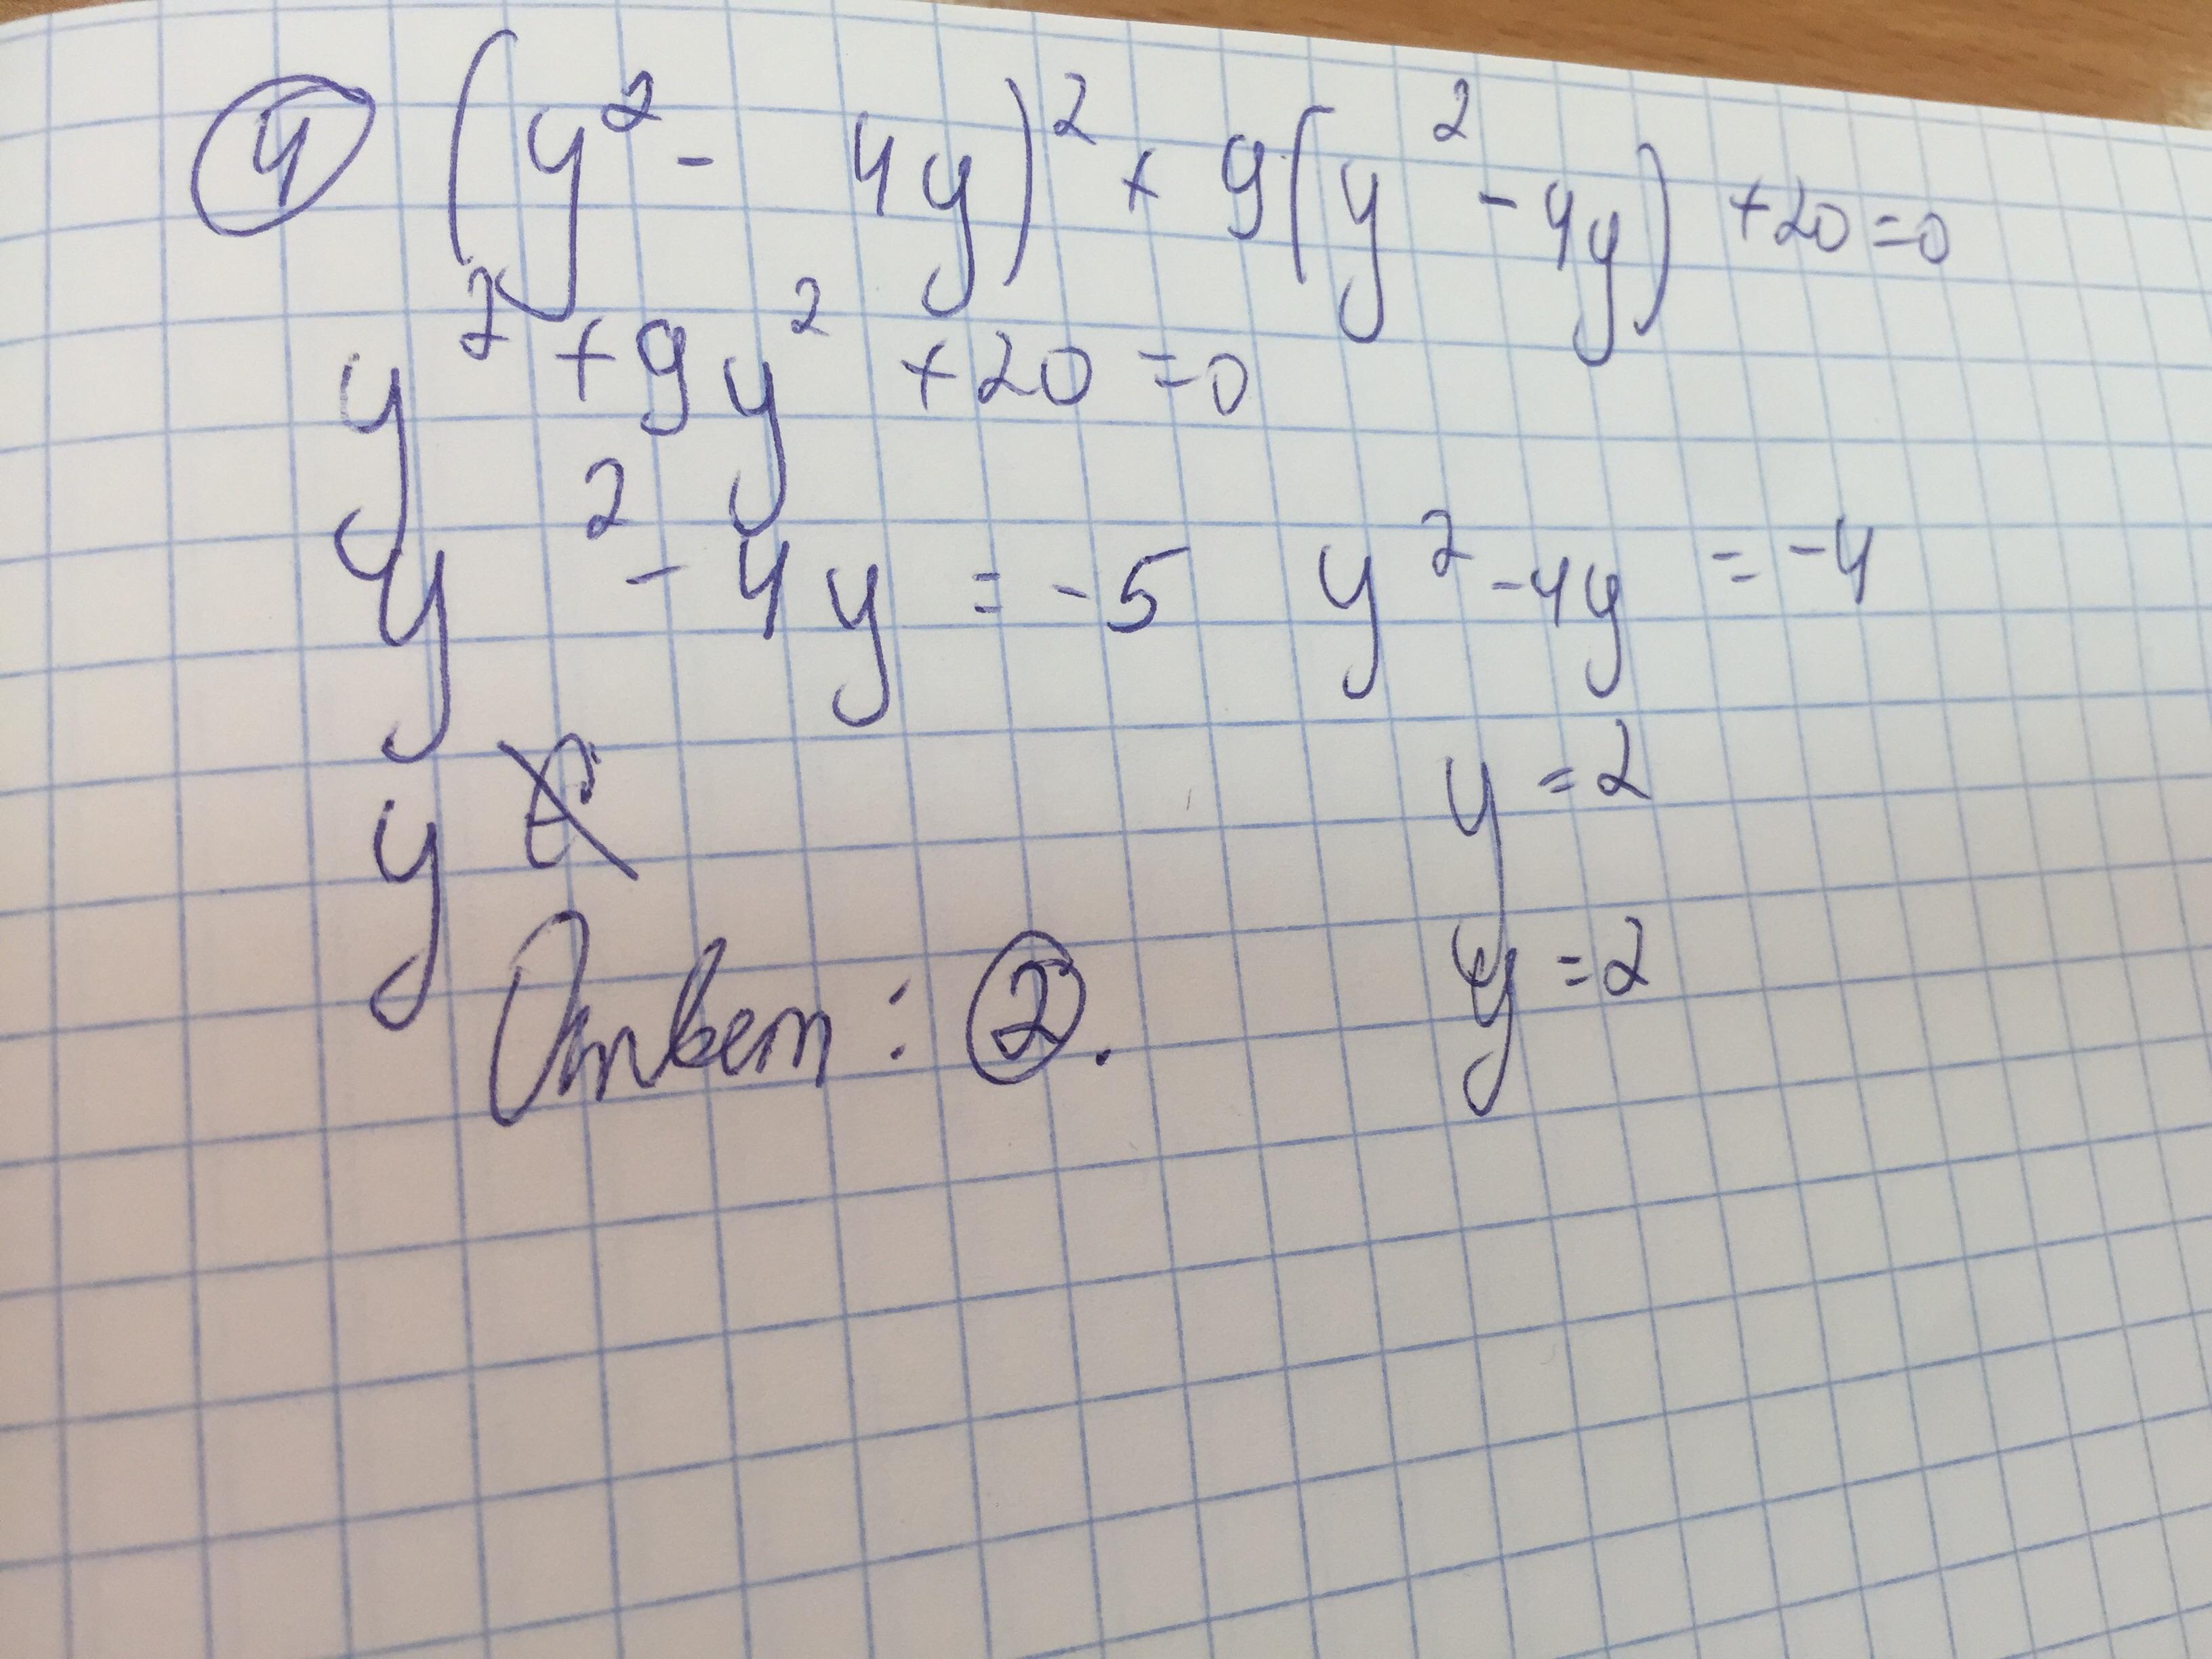 ④ (y² - 4y)² + 9(y² - 4y) + 20 = 0
y² + 9y² + 20 = 0
y² - 4y = -5 y² - 4y = -4
y = 2
y
y = 2
Ответ: ②.